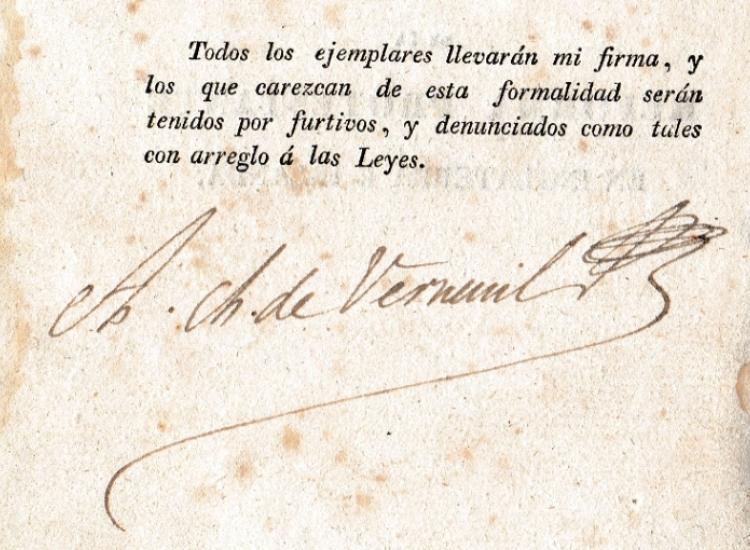 Todos los ejemplares llevarán mi firma, y
los que carezcan de esta formalidad serán
tenidos por furtivos, y denunciados como tales
con arreglo á las Leyes.
A. Ch. de Verneuil